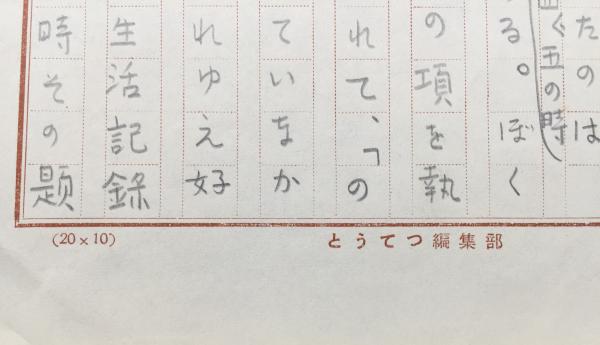 たのは
ぐ五の時
る。ぼく
の項を執
れて、「の
ていなか
れゆえ好
生活記録
時その題
(20×10)
とうてつ編集部